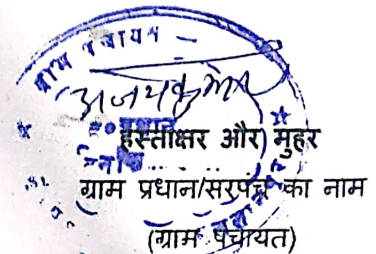 ग्राम पंचायत
अजय कुमार
हस्ताक्षर और मुहर
ग्राम प्रधान/सरपंच का नाम
(ग्राम पंचायत)